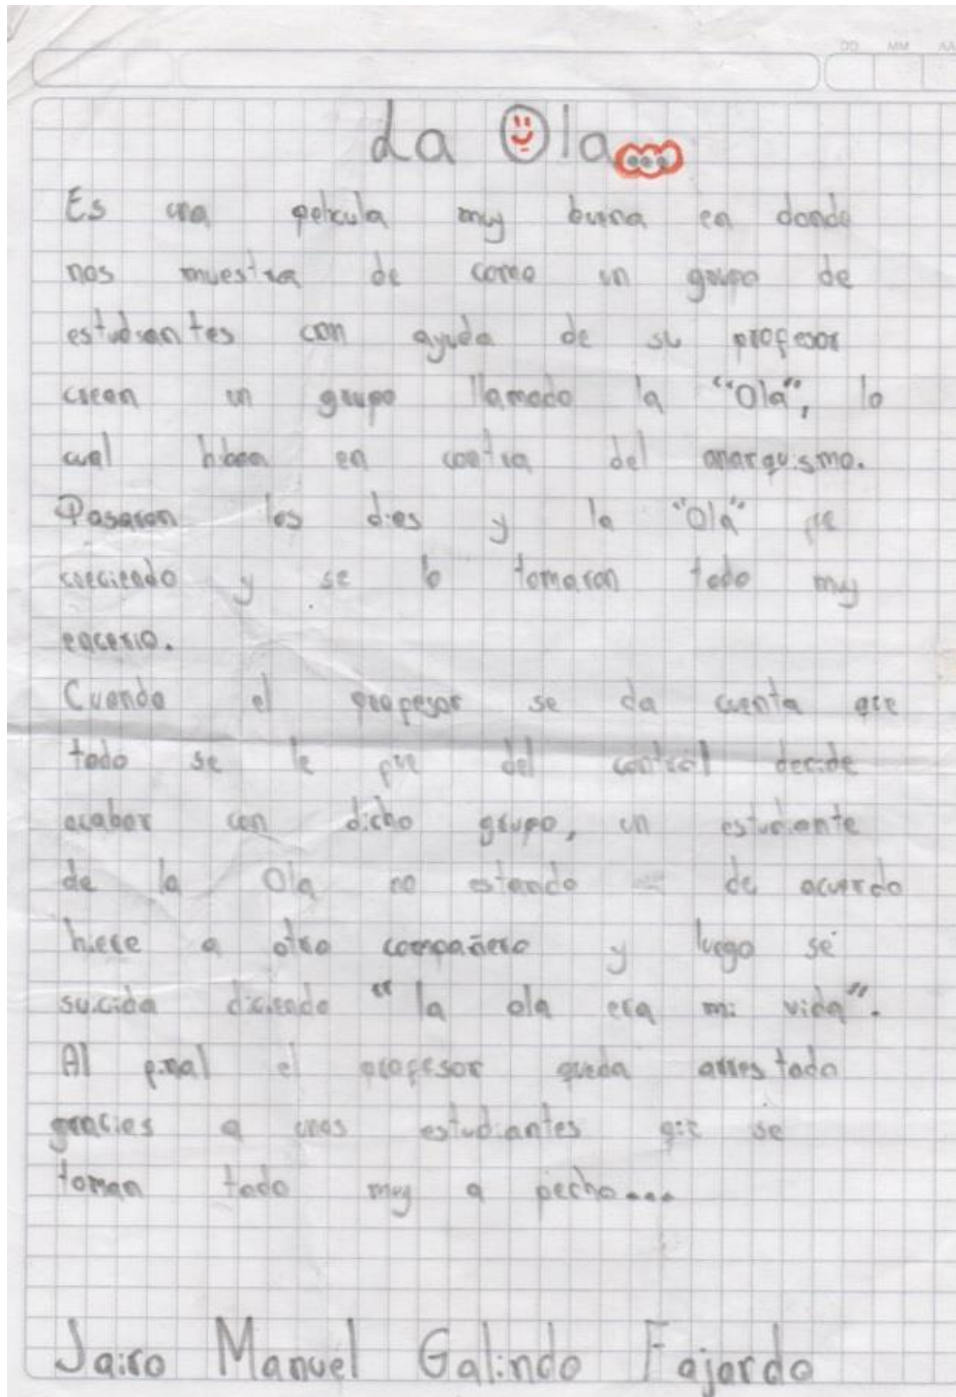 DD MM AA
La Ola...
Es una película muy buena en donde
nos muestra de como un grupo de
estudiantes con ayuda de su profesor
crean un grupo llamado la "Ola", lo
cual hiban en contra del anarquismo.
Pasaron los dias y la "Ola" fue
creciendo y se lo tomaron todo muy
encerio.
Cuando el profesor se da cuenta que
todo se le fue del control decide
acabar con dicho grupo, un estudiante
de la Ola no estando de acuerdo
hiere a otro compañero y luego se
suicida diciendo "la ola era mi vida".
Al final el profesor queda arrestado
gracias a unos estudiantes que se
toman todo muy a pecho...
Jairo Manuel Galindo Fajardo